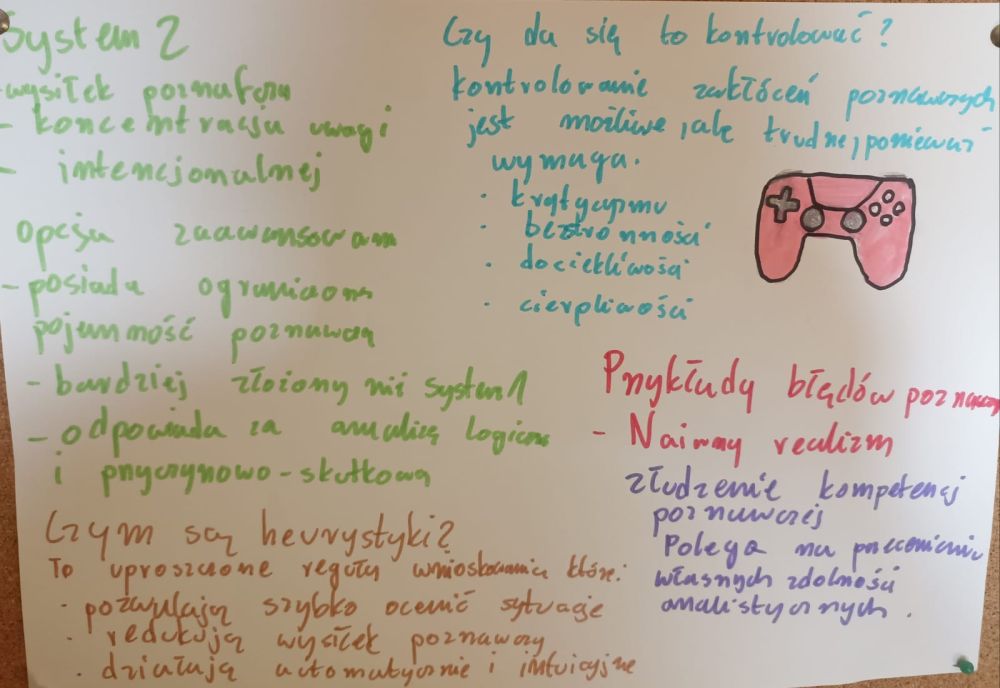 System 2
- wysiłek poznawczy
- koncentracja uwagi
- intencjonalnej
opcja zaawansowana
- posiada ograniczoną
pojemność poznawczą
- bardziej złożony niż system 1
- odpowiada za analizę logiczną
i przyczynowo-skutkową
Czym są heurystyki?
To uproszczone reguły wnioskowania które:
· pozwalają szybko ocenić sytuacje
· redukują wysiłek poznawczy
· działają automatycznie i intuicyjne
Czy da się to kontrolować?
kontrolowanie zakłóceń poznawczych
jest możliwe, ale trudne, ponieważ
wymaga.
· krytycyzmu
· bezstronności
· dociekliwości
· cierpliwości
Przykłady błędów poznawczych
- Naiwny realizm
złudzenie kompetencji
poznawczej
Polega na przecenianiu
własnych zdolności
analistycznych.